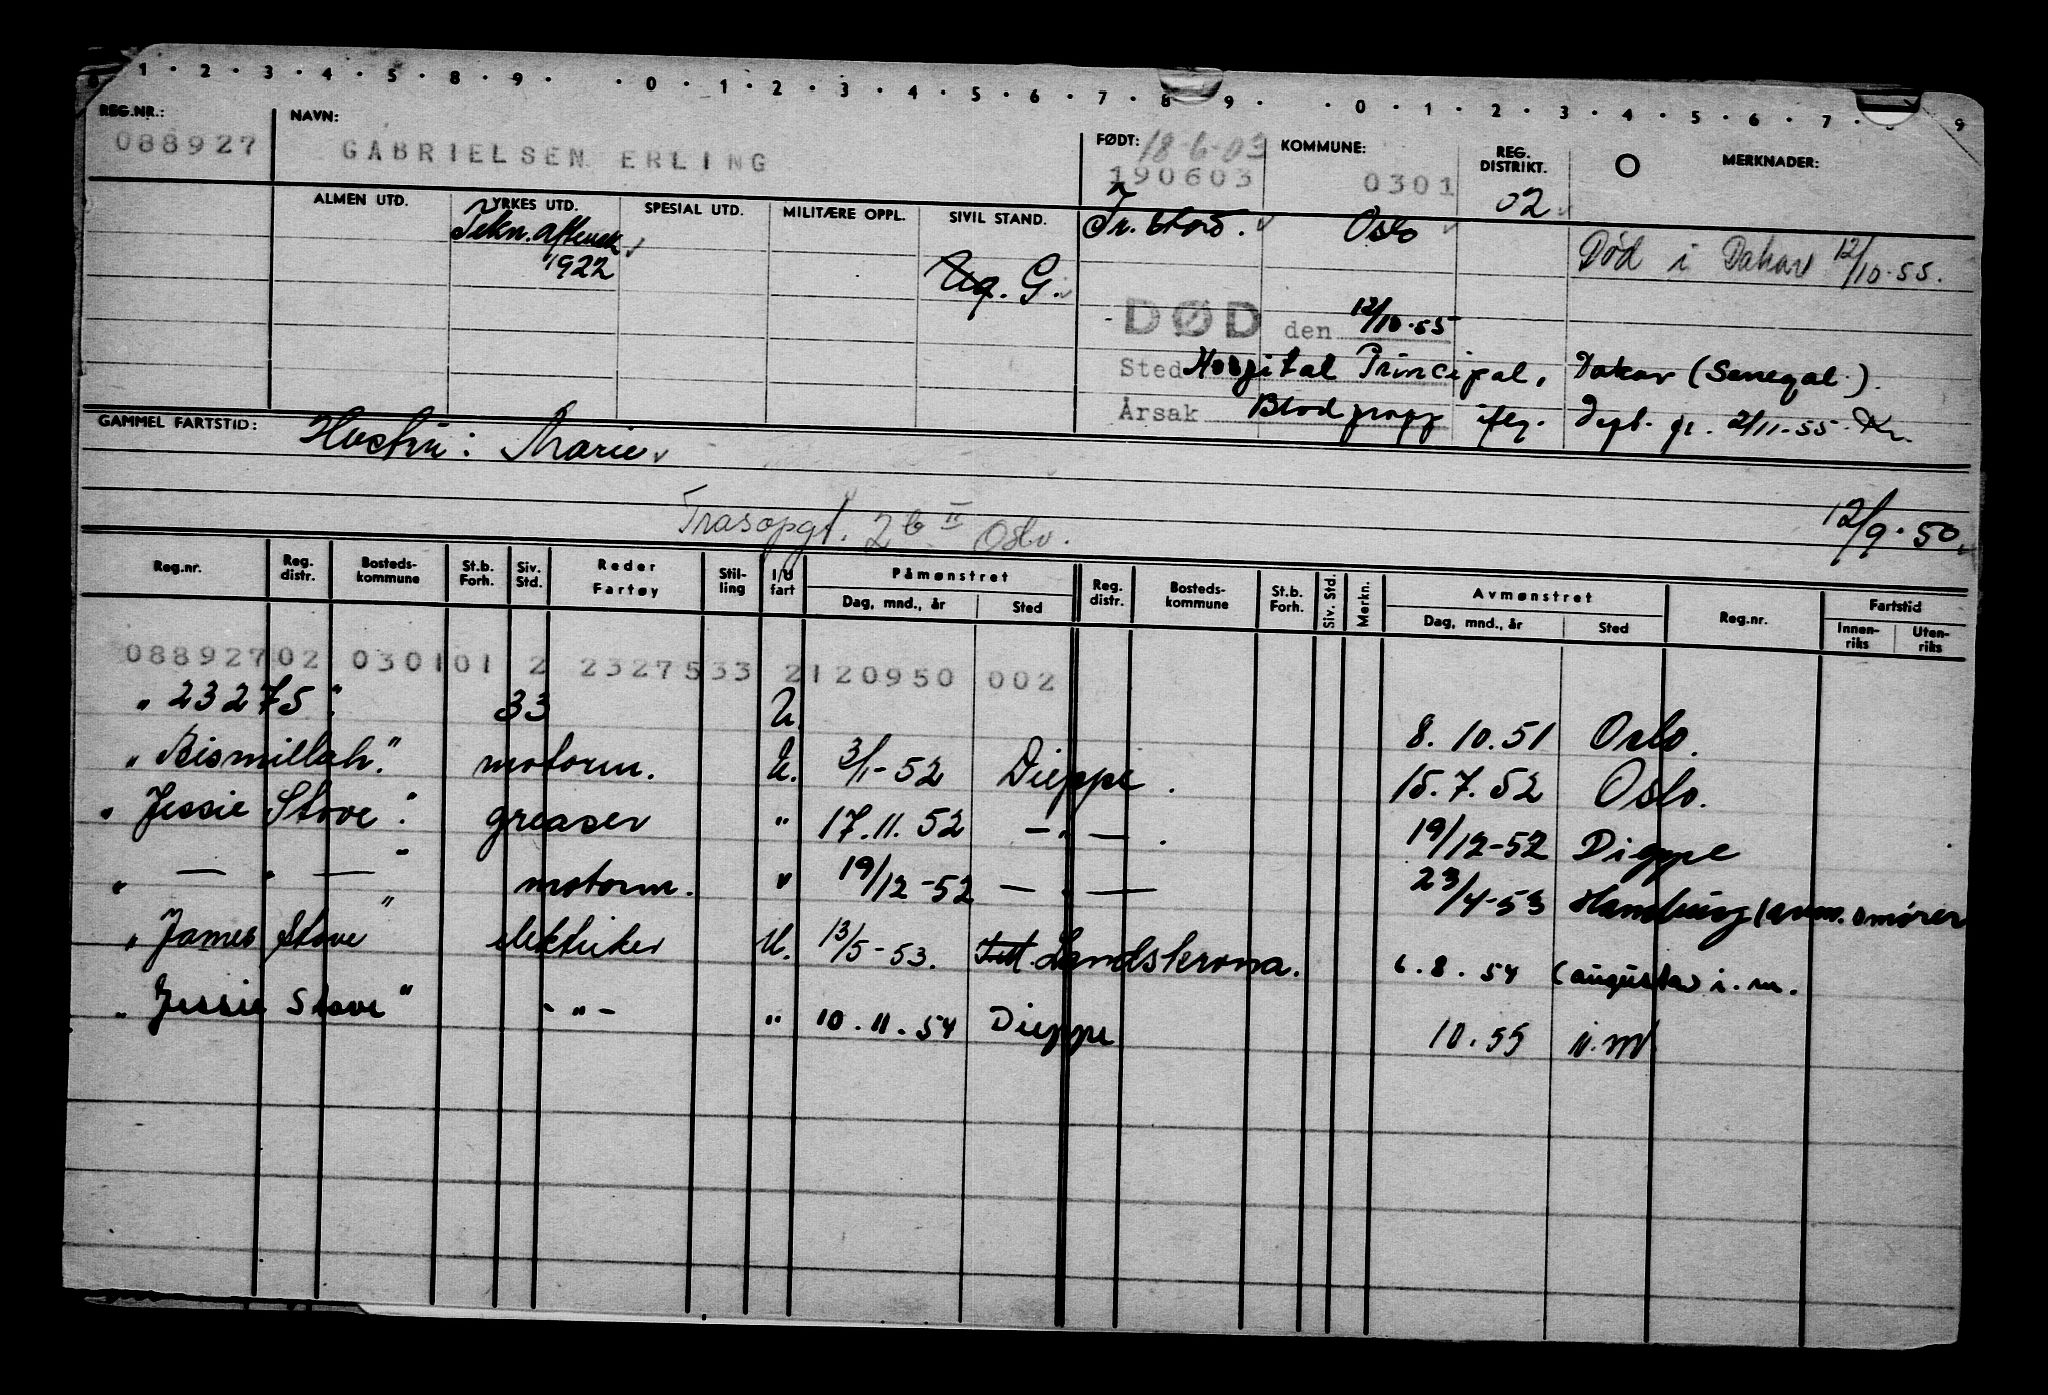 1 · 2 · 3 · 4 · 5 · 8 · 9 · · 0 · 1 · 2 · 3 · 4 · 5 · 6 · 7 · 8 · 9 · · 0 · 1 · 2 · 3 · 4 · 5 · 6 · 7 · 9
REG.NR.: NAVN: FØDT: 18-6-03 KOMMUNE: REG. DISTRIKT. O MERKNADER:
088927 GABRIELSEN ERLING 190603 0301 02
ALMEN UTD. YRKES UTD. SPESIAL UTD. MILITÆRE OPPL. SIVIL STAND. Fr. stad. Oslo
Tekn. aftensk. 1922 Ug. G. Død i Dakar 12/10.55.
DØD den 12/10.55
Sted Hospital Principal, Dakar (Senegal).
Årsak Blodpropp iflg. 2/11-55. Kr.
GAMMEL FARTSTID: Hustru: Marie
2b II Oslo. 12/9.50
Reg.nr. Reg. distr. Bosteds-kommune St.b. Forh. Siv. Std. Reder Fartøy Stil-ling I/U fart Påmønstret Reg. distr. Bosteds-kommune St.b. Forh. Siv. Std. Merkn. Avmønstret Reg.nr. Fartstid
Dag, mnd., år Sted Dag, mnd., år Sted Innen-riks Uten-riks
08892702 030101 2 2327533 2120950 002
" 23275 " 33 U. 8.10.51 Oslo.
" Bismillah. " motorm. U. 3/1-52 Dieppe. 15.7.52 Oslo.
" Jessie Stove " greaser " 17.11.52 — " — . 19/12-52 Dieppe
" — " — " motorm. " 19/12-52 — " — 23/4-53 Hamburg (avm. smører
" James Stove " elektriker U. 13/5-53. Landskrona. 6.8.54 (Augusta) i.m.
" Jessie Stove " - " - " 10.11.54 Dieppe 10.55 i.m